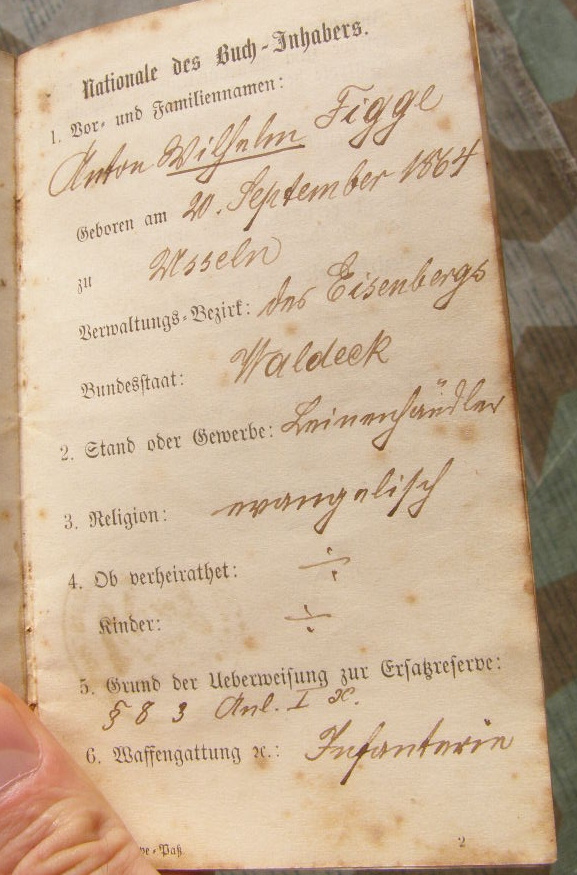 Nationale des Buch-Inhabers.
1. Vor- und Familiennamen:
Anton Wilhelm Figge
Geboren am 20. September 1864
zu Usseln
Verwaltungs-Bezirk: des Eisenbergs
Bundesstaat: Waldeck
2. Stand oder Gewerbe: Leinenhändler
3. Religion: evangelisch
4. Ob verheirathet: ÷
Kinder: ÷
5. Grund der Ueberweisung zur Ersatzreserve:
§ 8 3 Anl. I
6. Waffengattung ꝛc.: Infanterie
ve-Paß 2